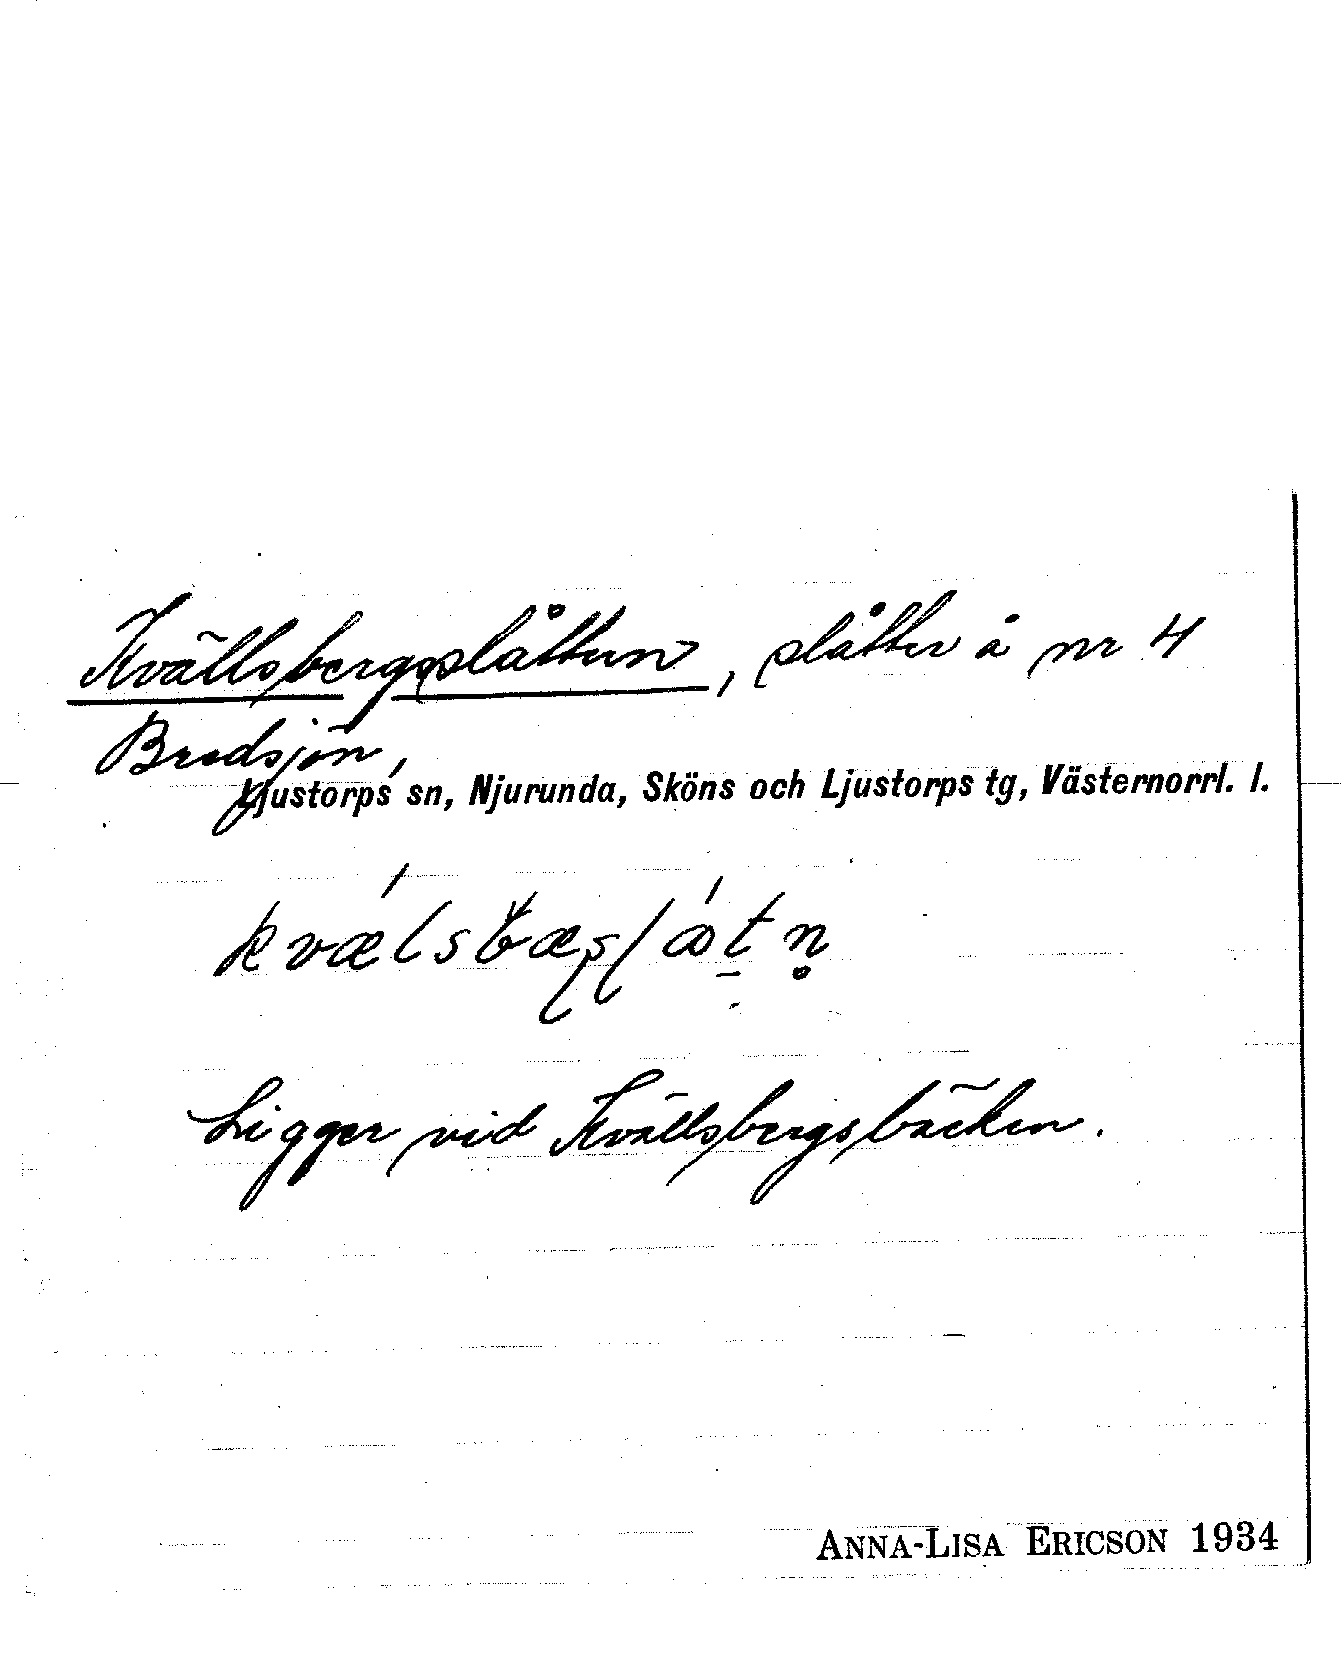 Kvällsbergsslåttern, slåtter å nr 4
Bredsjön,
Ljustorps sn, Njurunda, Sköns och Ljustorps tg, Västernorrl. l.
Ligger vid Kvällsbergsbäcken.
ANNA-LISA ERICSON 1934